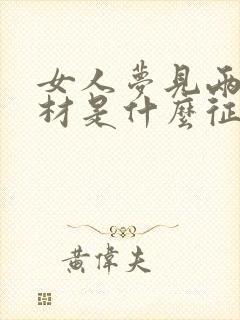 女人夢見兩
材是什麼征
黃偉夫